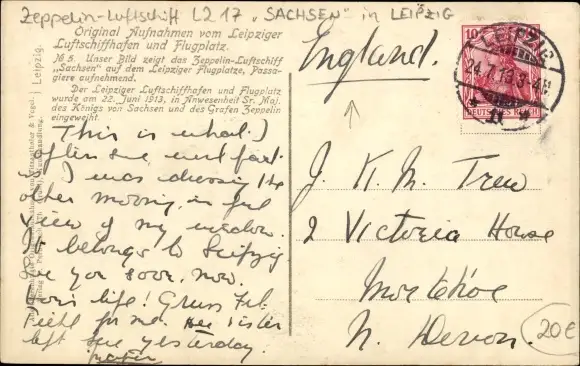 Zeppelin-Luftschiff LZ 17 „SACHSEN" in LEIPZIG
Original Aufnahmen vom Leipziger
Luftschiffhafen und Flugplatz.
№ 5 Unser Bild zeigt das Zeppelin-Luftschiff
„Sachsen" auf dem Leipziger Flugplatze, Passa-
giere aufnehmend.
Der Leipziger Luftschiffhafen und Flugplatz
wurde am 22. Juni 1913, in Anwesenheit Sr. Maj.
des Königs von Sachsen und des Grafen Zeppelin
eingeweiht.
This is what I
often see and
I was dressing the
other morning, in full
view of my window.
It belongs to Leipzig
See you soon, now.
life! Gruss
for me. sister
left me yesterday.
England.
10
LEIPZIG
24.7.13.3-4N
DEUTSCHES REICH
J. K. M. Trew
2 Victoria House
Mortehoe
N. Devon.
20€